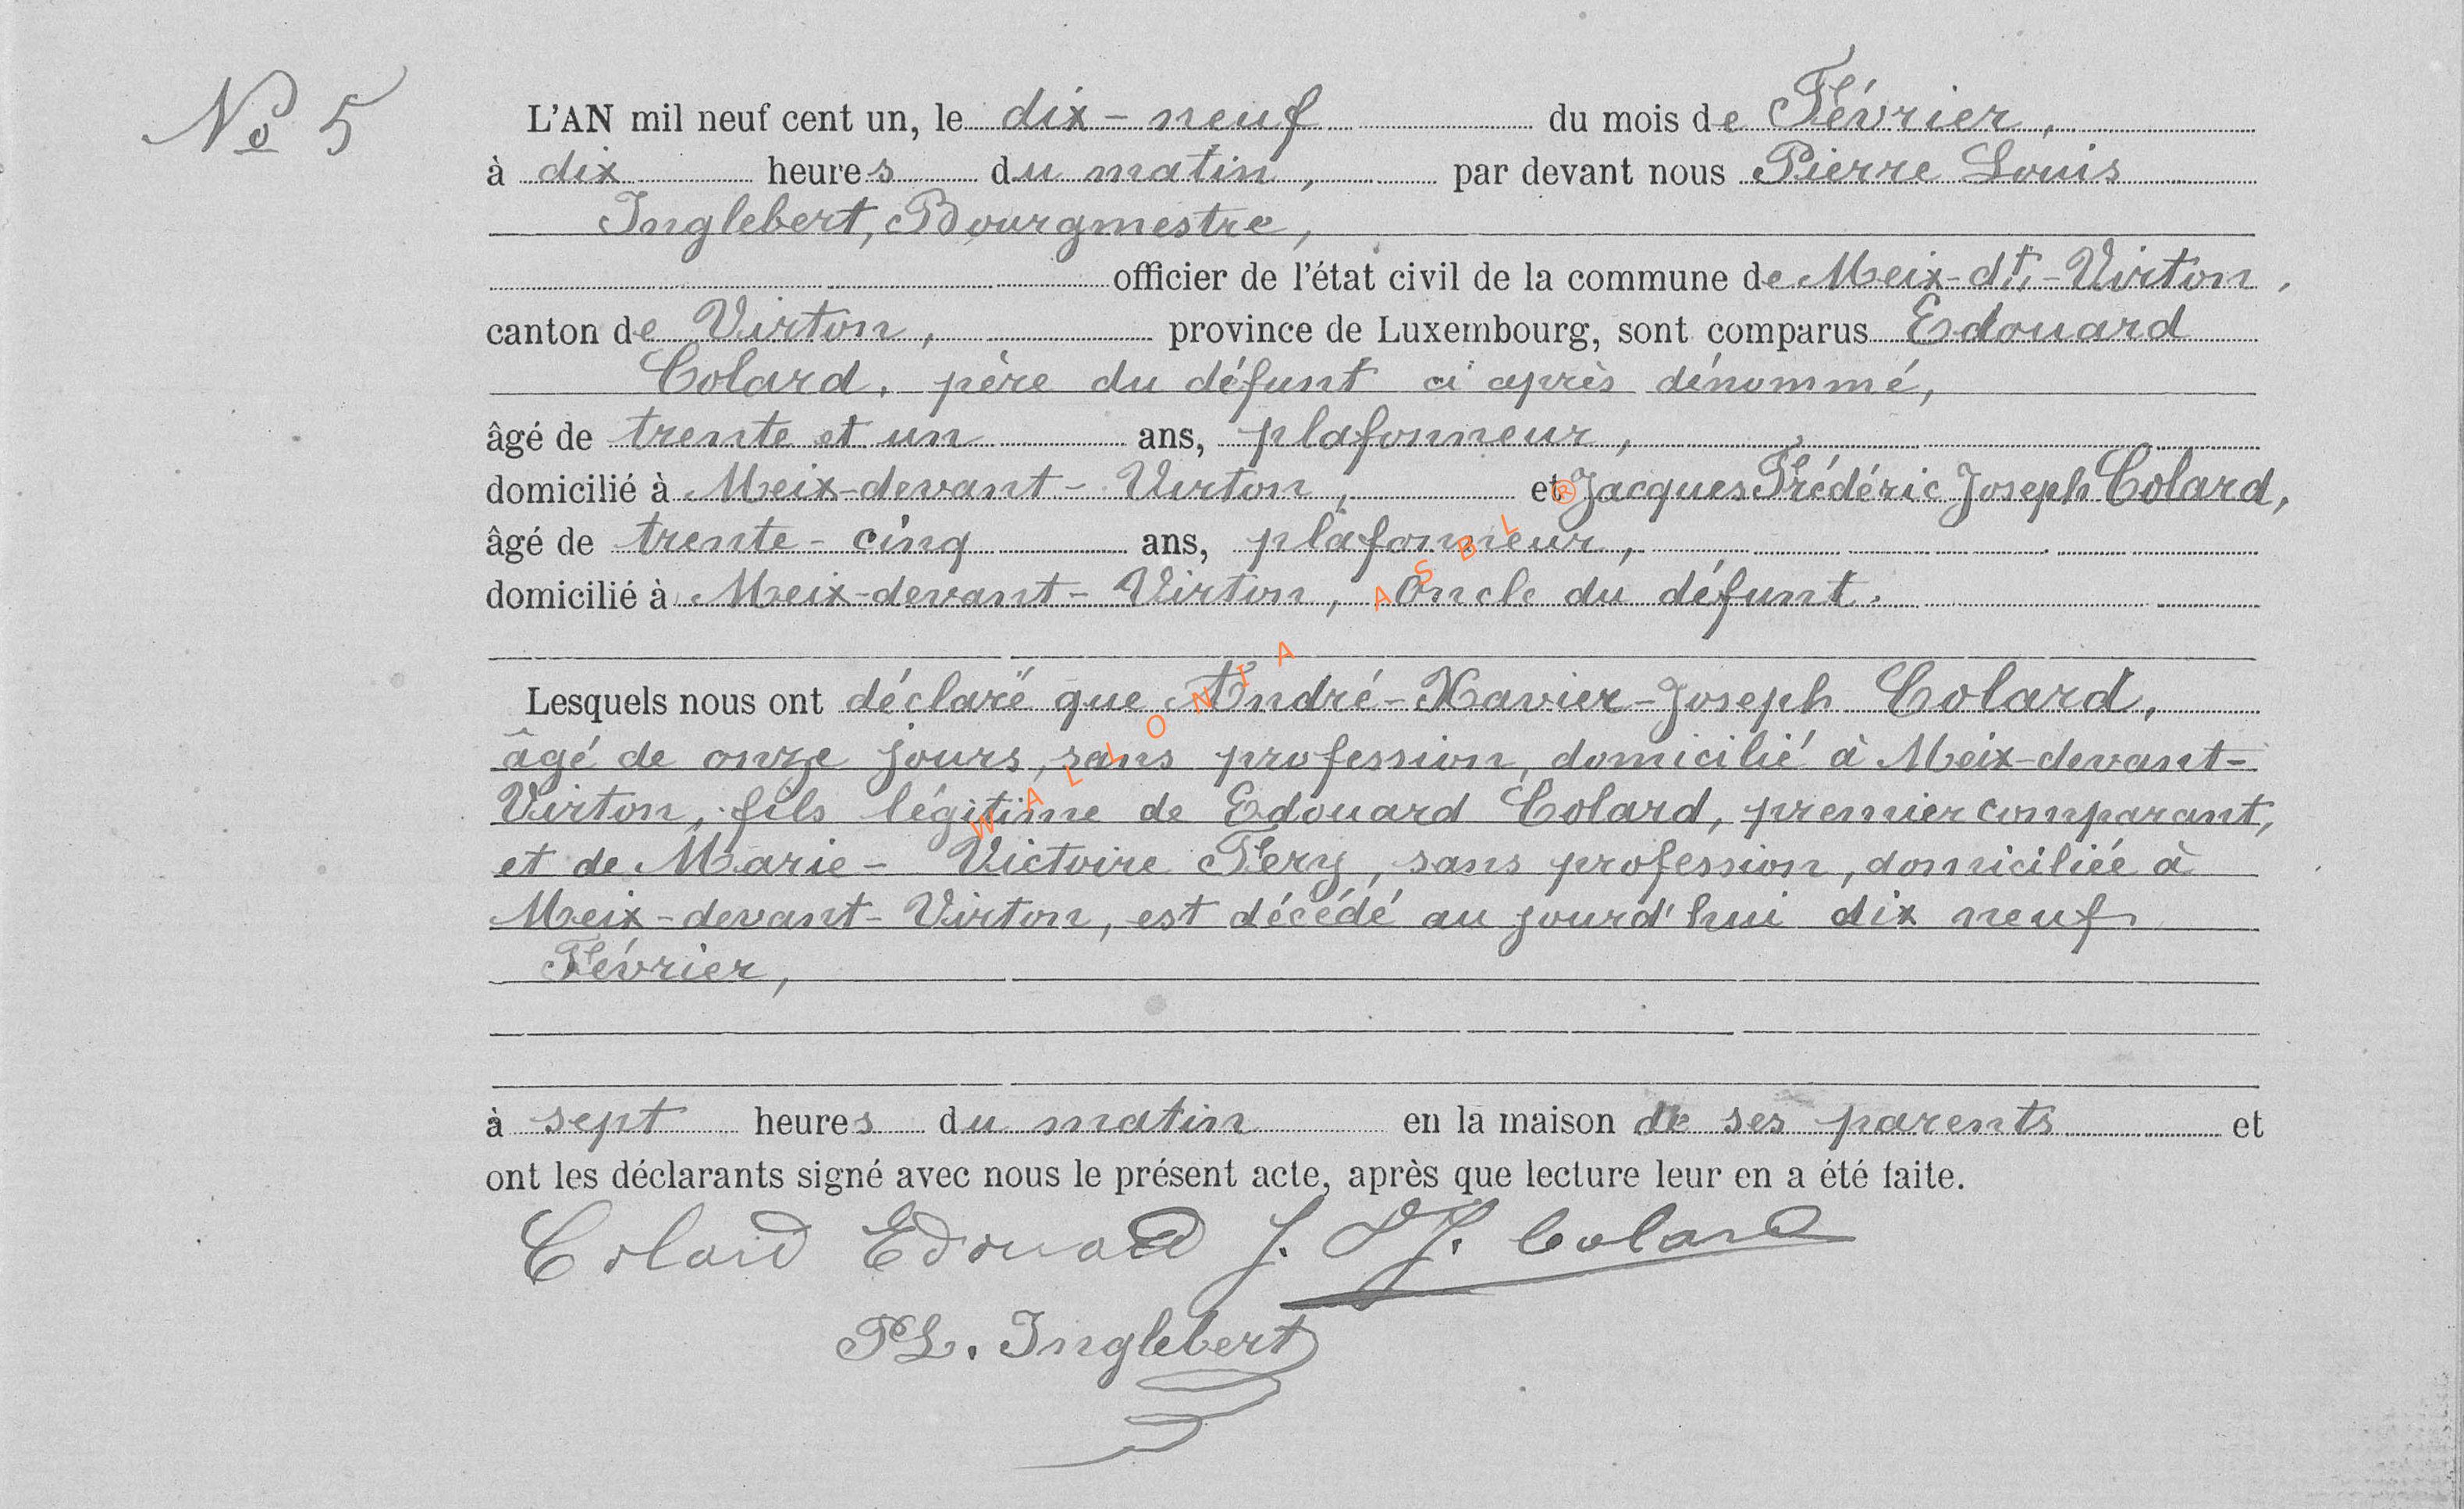 No 5
L'AN mil neuf cent un, le dix-neuf du mois de Février,
à dix heures du matin, par devant nous Pierre Louis
Inglebert, Bourgmestre,
officier de l'état civil de la commune de Meix-dt-Virton,
canton de Virton, province de Luxembourg, sont comparus Edouard
Colard, père du défunt ci après dénommé,
âgé de trente et un ans, plafonneur,
domicilié à Meix-devant-Virton, et Jacques Frédéric Joseph Colard,
âgé de trente-cinq ans, plafonneur,
domicilié à Meix-devant-Virton, oncle du défunt.
Lesquels nous ont déclaré que André-Xavier-Joseph Colard,
âgé de onze jours, sans profession, domicilié à Meix-devant-
Virton, fils légitime de Edouard Colard, premier comparant,
et de Marie-Victoire Fery, sans profession, domiciliée à
Meix-devant-Virton, est décédé au jourd'hui dix neuf
Février,
à sept heures du matin en la maison de ses parents et
ont les déclarants signé avec nous le présent acte, après que lecture leur en a été faite.
Colard Edouard J. F J. Colard
PL. Inglebert
WALLONIA ASBL ®